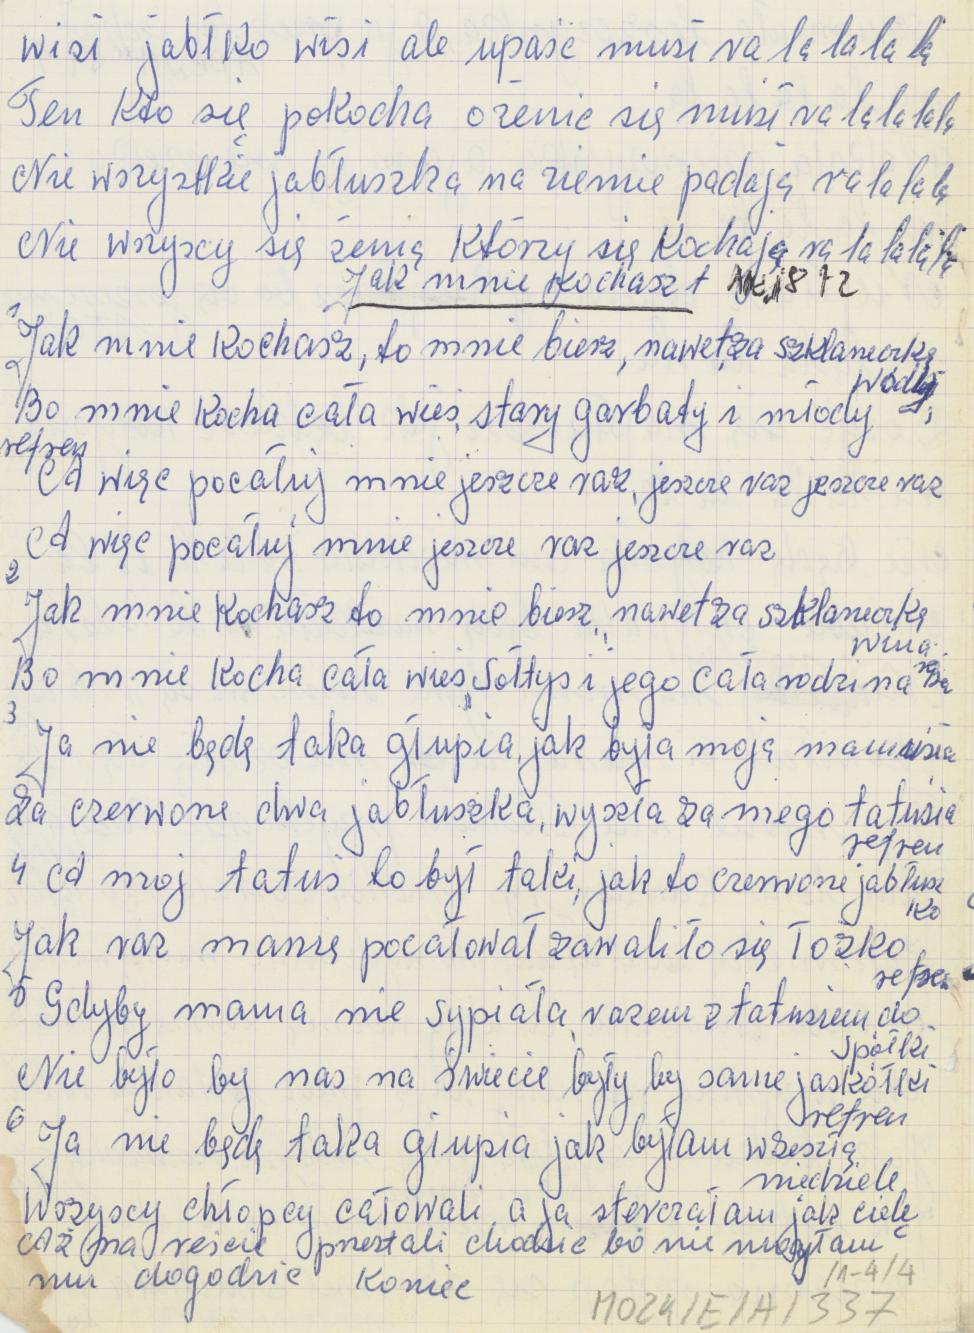 wizi jabłko wisi ale upaść musi ra la la la la
Ten kto się pokocha ożenic się musi ra la la la la
Nie wszyztkie jabłuszka na ziemie padają ra la la la
Nie wszyscy się żenią którzy się kochają ra la la la la
Jak mnie kochasz t 1872
1
Jak mnie kochasz, to mnie bierz, nawet za szklaneczkę
wody
2
Bo mnie kocha cała wieś, stary garbaty i młody,
refren
A więc pocałuj mnie jeszcze raz, jeszcze raz jeszcze raz
A więc pocałuj mnie jeszcze raz jeszcze raz
2
Jak mnie kochasz to mnie bierz, nawet za szklaneczkę
wina
Bo mnie kocha cała wieś, Sołtys i jego cała rodzina
3
Ja nie będę taka głupia, jak była moja mamusia
Za czerwone dwa jabłuszka, wyszła za niego tatusia
refren
4 A moj tatuś to był taki, jak to czerwone jabłusz
ko
Jak raz mamę pocałował zawaliło się łożko
refren
5 Gdyby mama nie sypiała, razem z tatusiem do
spółki
Nie było by nas na świecie były by same jaskółki
refren
6 Ja nie będę taka głupia jak byłam wzeszłą
niedziele
Wszyscy chłopcy całowali, a ja sterczałam jak ciele
Aż na reście przestali chodzić bo nie mogłam
mu dogodzić koniec
/1-4/4
MOZK/E/A/337